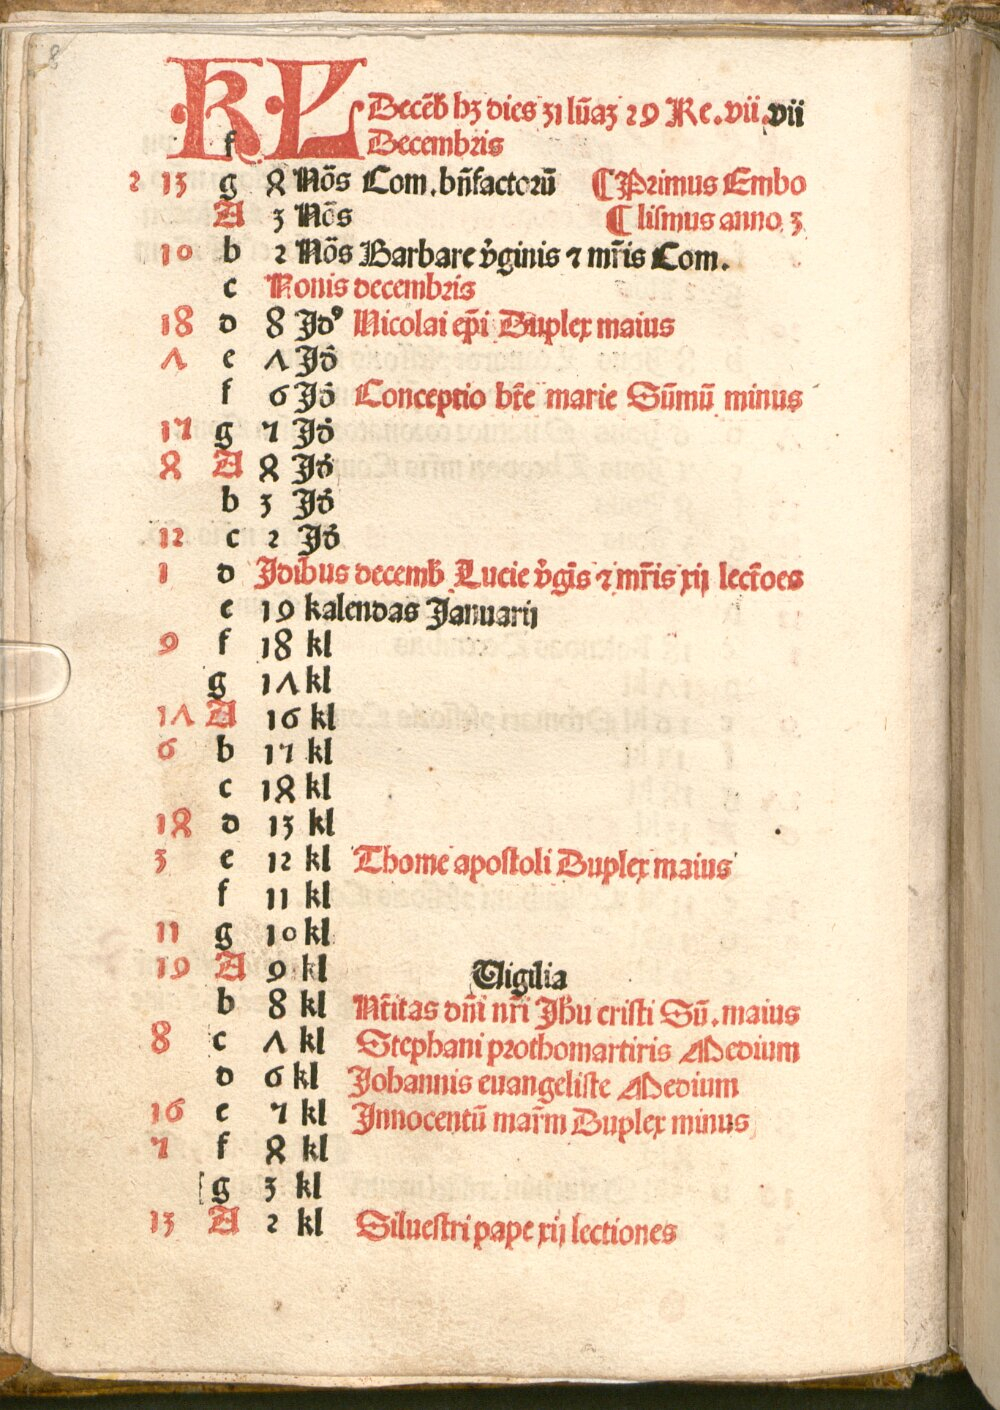 8
KL Decēb hꝫ dies 31 lūaꝫ 29 Re.vii.vii
f Decembris
2 13 g 4 Nōs Com.bn̄factorū ¶Primus Embo
A 3 Nōs ¶lismus anno 3
10 b 2 Nōs Barbare v̄ginis ⁊ mr̄is Com.
c Nonis decembris
18 d 8 Idꝰ Nicolai ep̄i Duplex maius
7 e 7 Id9
f 6 Id9 Conceptio bt̄e marie Sūmū minus
15 g 5 Id9
4 A 4 Id9
b 3 Id9
12 c 2 Id9
1 d Idibus decemb Lucie v̄gīs ⁊ mr̄is xij lectōes
e 19 kalendas Januarij
9 f 18 kl
g 17 kl
17 A 16 kl
6 b 15 kl
c 14 kl
14 d 13 kl
3 e 12 kl Thome apostoli Duplex maius
f 11 kl
11 g 10 kl
19 A 9 kl Uigilia
b 8 kl Nt̄itas dn̄i nr̄i Jhu cristi Sū.maius
8 c 7 kl Stephani prothomartiris Medium
d 6 kl Johannis euangeliste Medium
16 e 5 kl Innocentū mar̄m Duplex minus
5 f 4 kl
g 3 kl
13 A 2 kl Siluestri pape xij lectiones